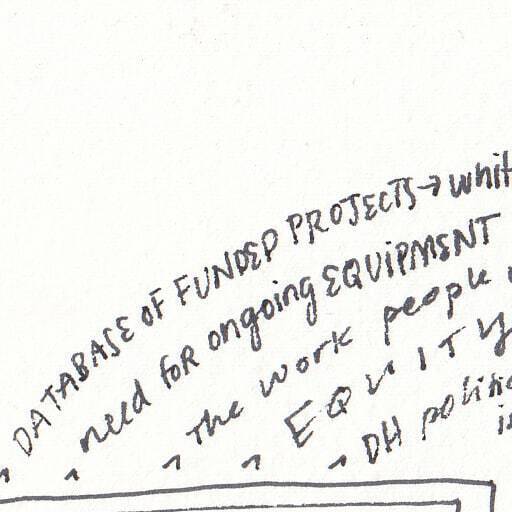 DATABASE OF FUNDED PROJECTS → whit
need for ongoing EQUIPMENT
The work people
EQUITY
DH politic